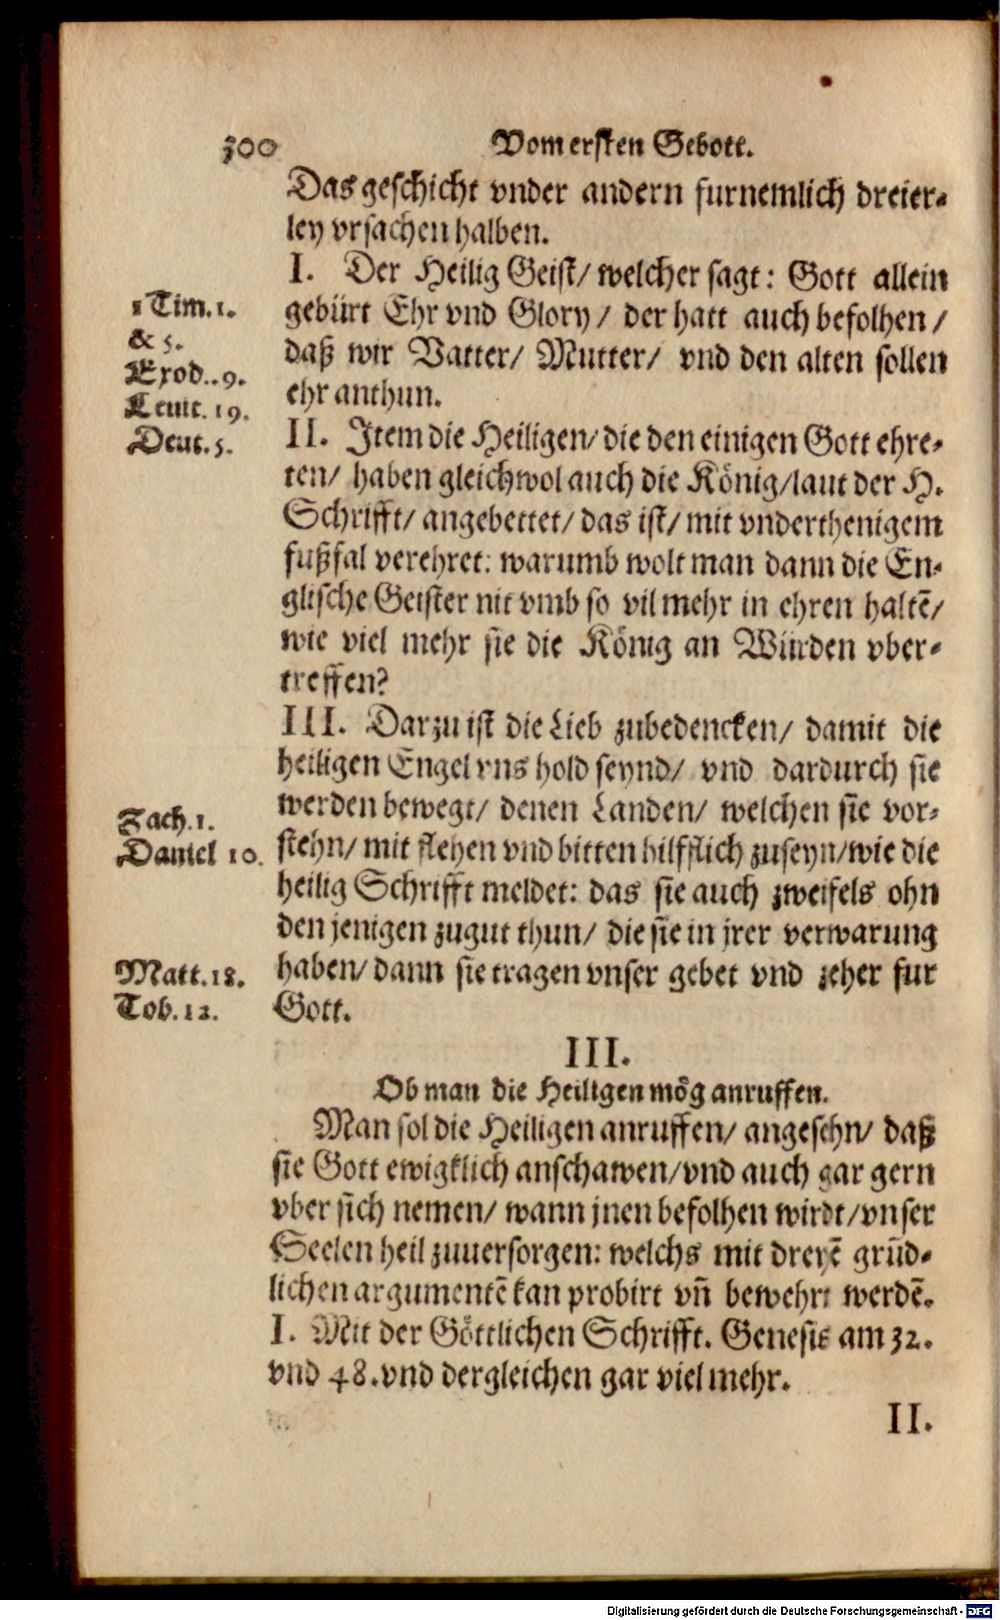 300 Vom ersten Gebott.
Das geschicht vnder andern furnemlich dreier-
ley vrsachen halben.
I. Der Heilig Geist/ welcher sagt: Gott allein
1 Tim. 1.
gebürt Ehr vnd Glory/ der hatt auch befolhen/
& 5.
daß wir Vatter/ Mutter/ vnd den alten sollen
Exod..9.
ehr anthun.
Leuit. 19.
Deut. 5.
II. Item die Heiligen/ die den einigen Gott ehre-
ten/ haben gleichwol auch die König/ laut der H.
Schrifft/ angebettet/ das ist/ mit vnderthenigem
fußfal verehret: warumb wolt man dann die En-
glische Geister nit vmb so vil mehr in ehren haltẽ/
wie viel mehr sie die König an Würden vber-
treffen?
III. Darzu ist die Lieb zubedencken/ damit die
heiligen Engel vns hold seynd/ vnd dardurch sie
werden bewegt/ denen Landen/ welchen sie vor-
Zach. 1.
stehn/ mit flehen vnd bitten hilfflich zuseyn/ wie die
Daniel 10.
heilig Schrifft meldet: das sie auch zweifels ohn
den jenigen zugut thun/ die sie in jrer verwarung
haben/ dann sie tragen vnser gebet vnd zeher fur
Matt. 18.
Gott.
Tob. 12.
III.
Ob man die Heiligen mög anruffen.
Man sol die Heiligen anruffen/ angesehn/ daß
sie Gott ewigklich anschawen/ vnd auch gar gern
vber sich nemen/ wann jnen befolhen wirdt/ vnser
Seelen heil zuuersorgen: welchs mit dreyẽ grũd-
lichen argumentẽ kan probirt vñ bewehrt werdẽ.
I. Mit der Göttlichen Schrifft. Genesis am 32.
vnd 48. vnd dergleichen gar viel mehr.
II.
Digitalisierung gefördert durch die Deutsche Forschungsgemeinschaft - DFG